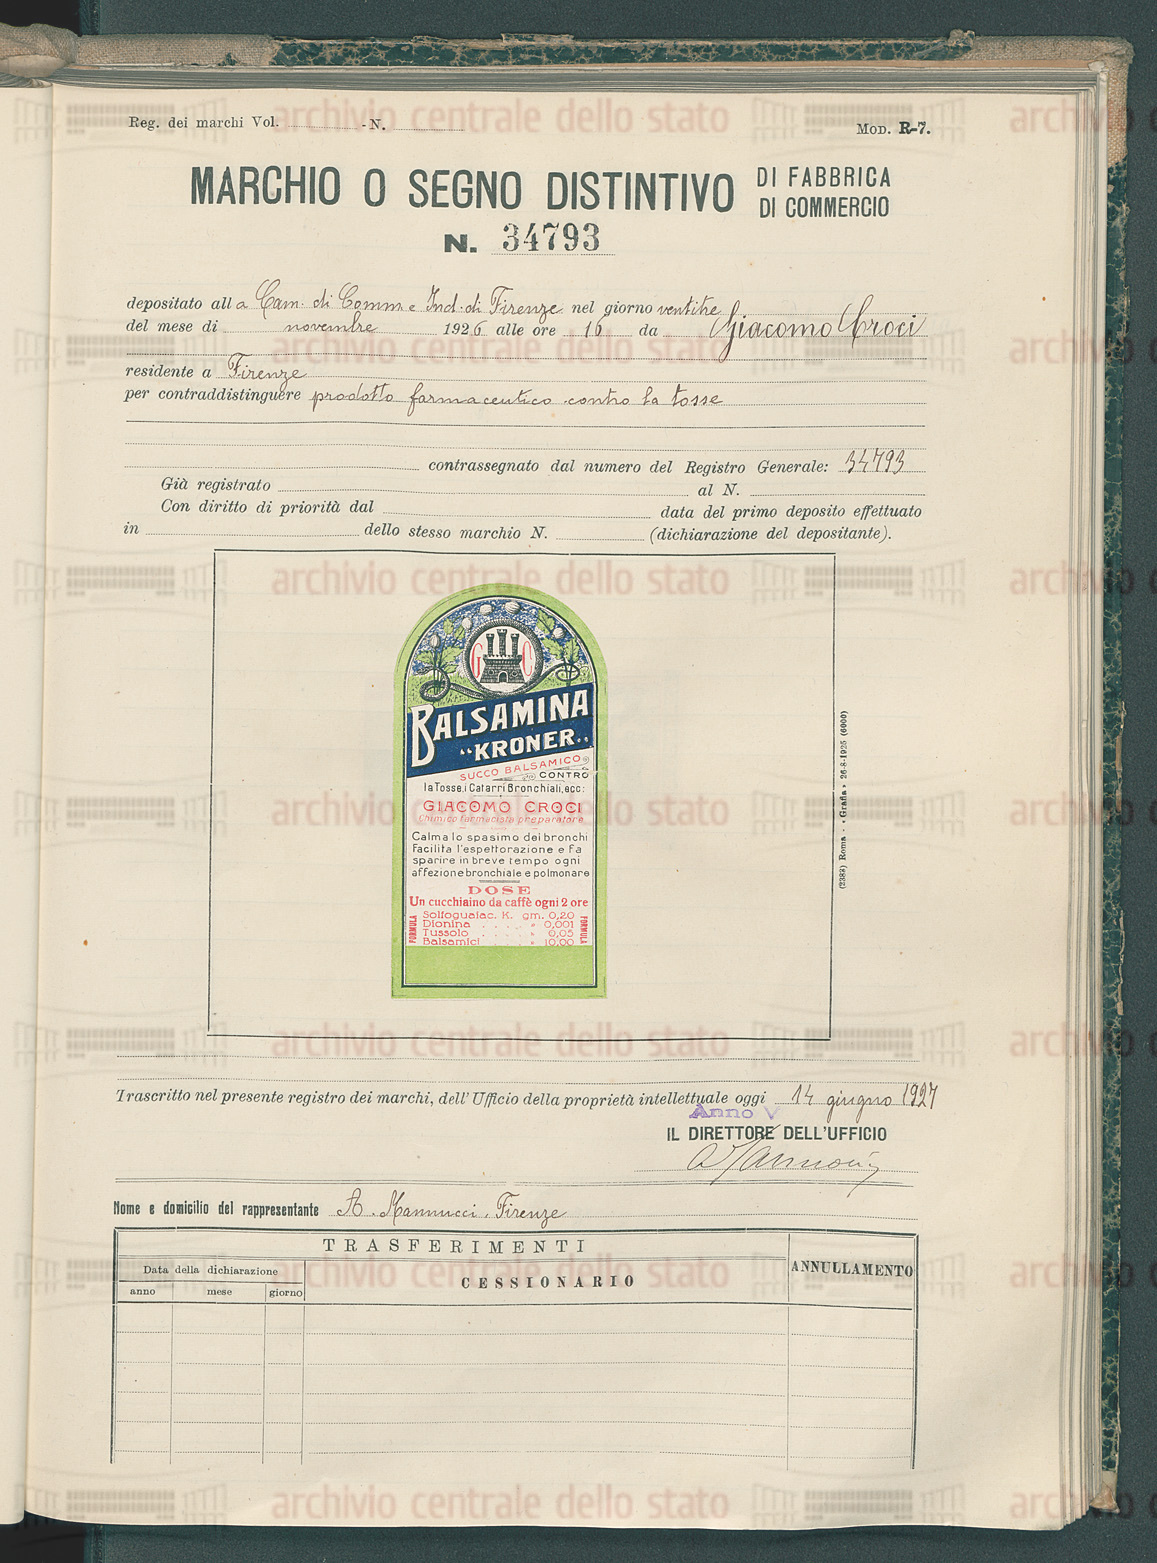 Reg. dei marchi Vol. - N.
MOD. R-7.
MARCHIO O SEGNO DISTINTIVO DI FABBRICA
DI COMMERCIO
N. 34793
depositato alla Cam. di Comm e Ind. di Firenze nel giorno ventitre
del mese di novembre 1926 alle ore 16 da Giacomo Croci
residente a Firenze
per contraddistinguere prodotto farmaceutico contro la tosse
contrassegnato dal numero del Registro Generale: 34793
Già registrato al N.
Con diritto di priorità dal data del primo deposito effettuato
in dello stesso marchio N. (dichiarazione del depositante).
G C
BALSAMINA
"KRONER"
SUCCO BALSAMICO
CONTRO
la Tosse, i Catarri Bronchiali, ecc:
GIACOMO CROCI
Chimico farmacista preparatore
Calma lo spasimo dei bronchi
Facilita l'espettorazione e fa
sparire in breve tempo ogni
affezione bronchiale e polmonare
DOSE
Un cucchiaino da caffè ogni 2 ore
FORMULA
Solfoguaiac. K. gm. 0,20
Dionina . . . . " 0,001
Tussolo . . . . " 0,05
Balsamici . . . " 10,00
FORMULA
(2383) Roma - « Grafia » 26-8-1925 (6000)
Trascritto nel presente registro dei marchi, dell'Ufficio della proprietà intellettuale oggi 14 giugno 1927
Anno V
IL DIRETTORE DELL'UFFICIO
Nome e domicilio del rappresentante A. Mannucci. Firenze
TRASFERIMENTI
ANNULLAMENTO
Data della dichiarazione
CESSIONARIO
anno mese giorno
archivio centrale dello stato